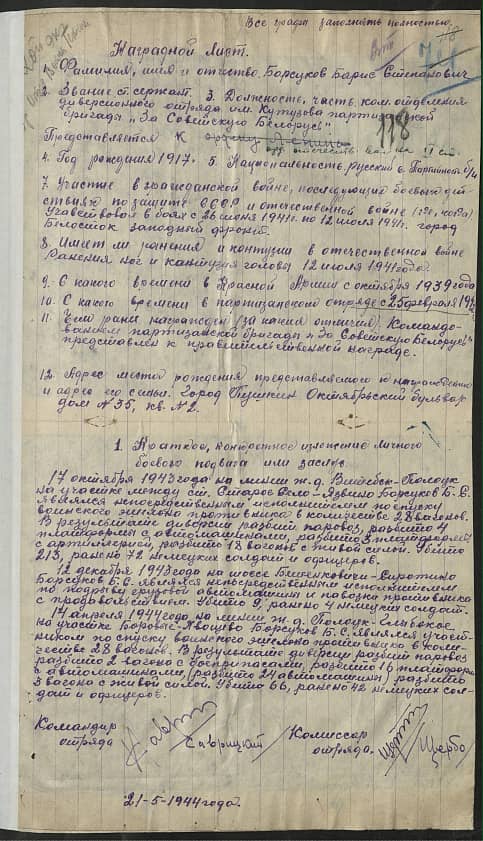 Все графы заполнять полностью.
Наградной лист.
1. Фамилия, имя и отчество Борсуков Барис Степанович
2. Звание ст. сержант. 3. Должность, часть ком. отделения
диверсионного отряда им. Кутузова партизанской
бригады „За Советскую Белорусь".
118
Представляется к ордену Ленина
орд. отечеств. войны II ст.
4. Год рождения 1917г. 5. Национальность русский 6. Партийность б/п
7. Участие в гражданской войне, последующих боевых дей-
ствиях по защите СССР и отечественной войне (где, когда)
Участвовал в боях с 26 июня 1941г. по 12 июля 1941г. город
Белосток западный фронт.
8. Имеет ли ранения и контузии в отечественной войне
Ранения ног и кантузия головы 12 июля 1941 года.
9. С какого времени в Красной Армии с октября 1939 года
10. С какого времени в партизанском отряде с 25 февраля
11. Чем ранее награжден (за какие отличия) Командо-
ванием партизанской бригады „За Советскую Белорусь"
представлен к правительственной награде.
12. Адрес места рождения представляемого к награждению
и адрес его семьи. Город Пушкин Октябрьский бульвар
дом № 35, кв. № 2.
1. Краткое, конкретное изложение личного
боевого подвига или заслуг.
17 октября 1943 года на линии ж.д. Витебск-Полоцк
на участке между ст. Старое Село - Язвино Борсуков Б.С.
являлся непосредственным исполнителем по спуску
воинского эшелона противника в количестве 28 вагонов.
В результате диверсии разбит паровоз, разбито 4
платформы с автомашинами, разбито 3 платформы
с артиллерией, разбито 13 вагонов с живой силой. Убито
213, ранено 72 немецких солдат и офицеров.
12 декабря 1943 года на шоссе Бешенковичи - Сиротино
Борсуков Б.С. являлся непосредственным исполнителем
по подрыву грузовой автомашины и повозки противника
с продовольствием. Убито 9, ранено 4 немецких солдат.
14 апреля 1944 года на линии ж.д. Полоцк-Глыбокое
на участке Боровое - Борсуков Б.С. являлся участ-
ником по спуску воинского эшелона противника в коли-
честве 28 вагонов. В результате диверсии разбит паровоз
разбито 2 вагона с боеприпасами, разбито 16 платформ
с автомашинами (разбито 24 автомашины) разбито
3 вагона с живой силой. Убито 66, ранено 42 немецких сол-
дат и офицеров.
Командир
отряда Саврицкий
Комиссар
отряда. Щербо
21-5-1944 года.